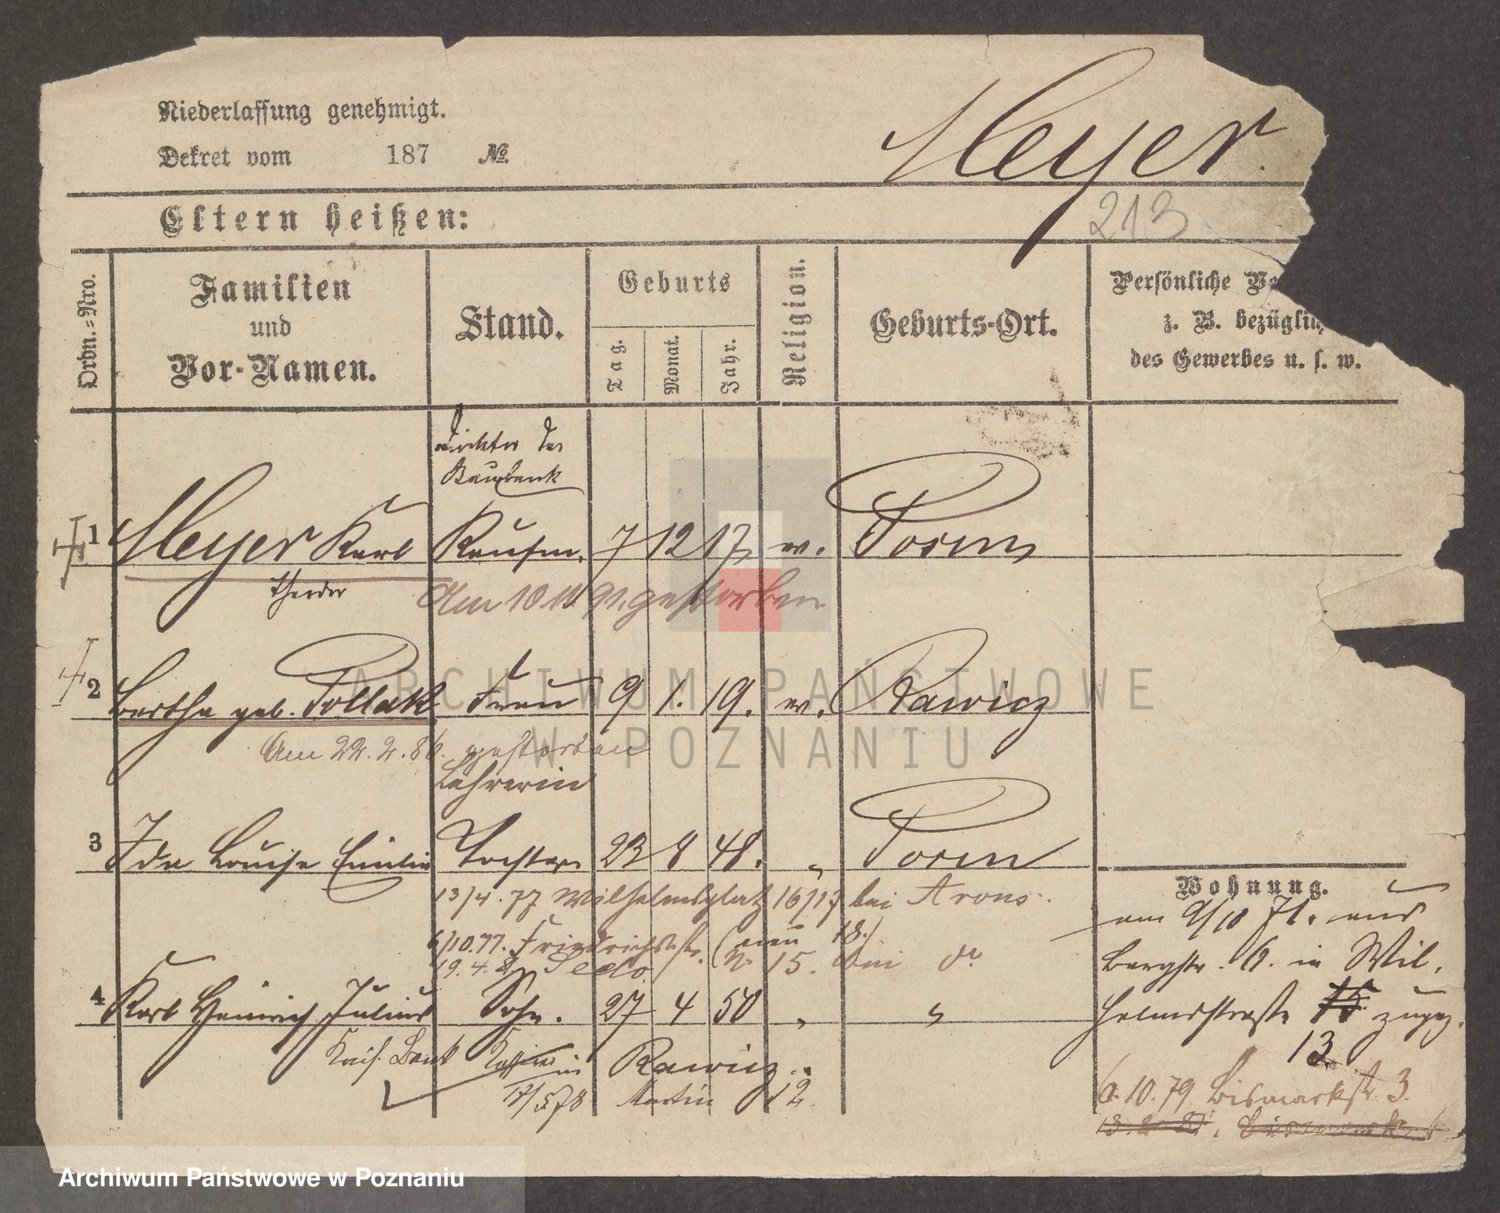 Niederlassung genehmigt.
Dekret vom 187 No.
Meyer.
213
Eltern heißen:
Ordn.-Nro.
Familien und Vor-Namen.
Stand.
Geburts
Tag.
Monat.
Jahr.
Religion.
Geburts-Ort.
Persönliche Be
z. B. bezüglich
des Gewerbes u. s. w.
Direktor der
Baubank
1 Meyer Karl Kaufm. 7 12 17 ev. Posen
Theodor Am 10 11 91. gestorben
2 Bertha geb. Pollak Frau 9 1. 19. ev. Rawicz
Am 22. 2. 86. gestorben
Lehrerin
3 Ida Louise Emilie Tochter 23 8 48. " Posen
13/4. 77 Wilhelmsplatz 16/17 bei Arons.
6/10.77. Friedrichstr. (neu 18.)
19. 4. 15. bei do
4 Karl Heinrich Julius Sohn. 27 4 50 " "
Kais. Bank in Rawicz
17/5 78 Martin 12
Wohnung.
am 9/10 71. aus
Bergstr. 6. in Wil.
helmstrasse 15 zugez.
13
6. 10. 79 Bismarkstr. 3.
Archiwum Państwowe w Poznaniu
ARCHIWUM PAŃSTWOWE
W POZNANIU